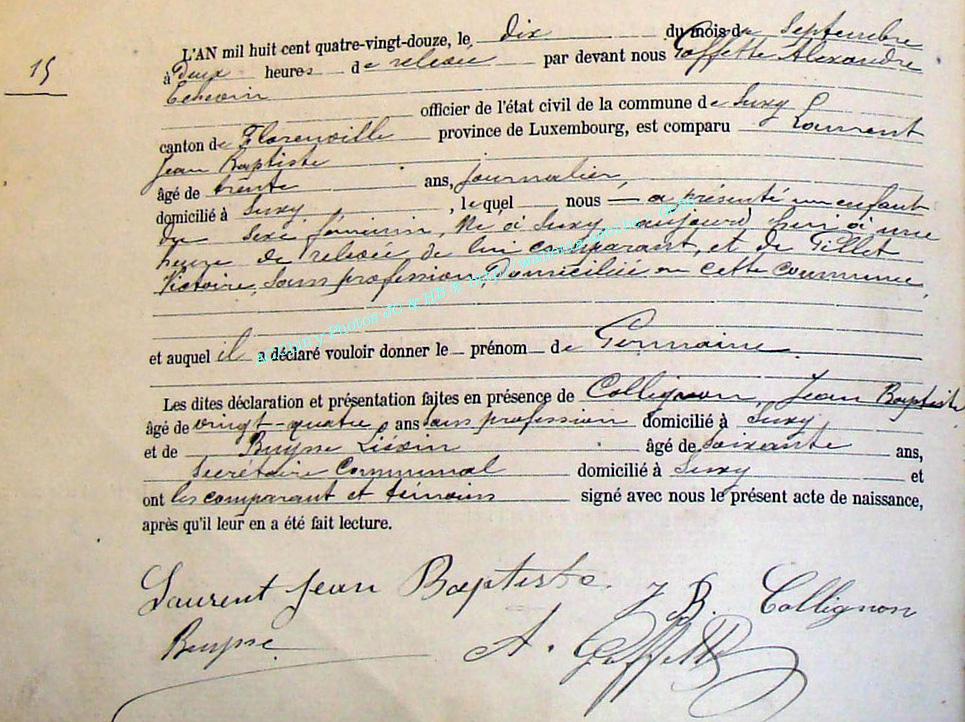 15
L'AN mil huit cent quatre-vingt-douze, le dix du mois de Septembre
à Deux heures de relevée par devant nous Goffette Alexandre
Echevin officier de l'état civil de la commune de Suxy
canton de Florenville province de Luxembourg, est comparu Laurent
Jean Baptiste
âgé de trente ans, journalier,
domicilié à Suxy, lequel nous a présenté un enfant
du sexe féminin, Né à Suxy, aujourd'hui à une
heure de relevée de lui comparant, et de Gillet
Victoire, sans profession, Domiciliée en cette commune,
et auquel il a déclaré vouloir donner le prénom de Germaine.
Les dites déclaration et présentation faites en présence de Collignon, Jean Baptiste
âgé de vingt-quatre ans sans profession domicilié à Suxy,
et de Buysse âgé de soixante ans,
Secrétaire Communal domicilié à Suxy et
ont les comparant et témoins signé avec nous le présent acte de naissance,
après qu'il leur en a été fait lecture.
Laurent Jean Baptiste. J B. Collignon
Buysse A. Goffette